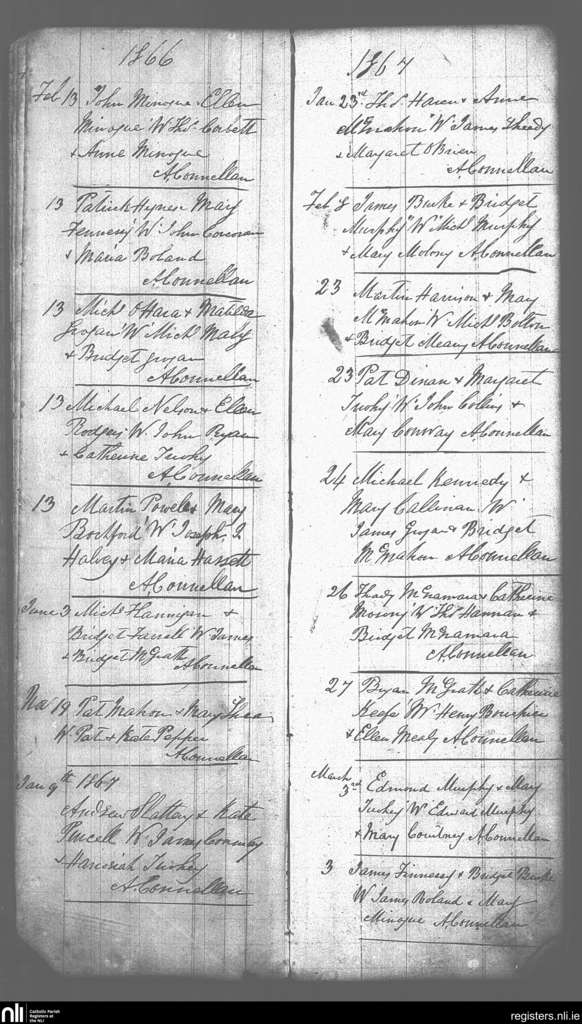 1866
Feb 13 John Minogue & Ellen
Minogue W. Thos. Corbett
& Anne Minogue
A Connellan
13 Patrick Hynes & Mary
Fennessy W. John Corcoran
& Maria Boland
A Connellan
13 Michl. O Hara & Matilda
Grogan W Michl.
& Bridget Grogan
A Connellan
13 Michael Nelson & Ellen
Rodgers W. John Ryan
& Catherine Tuohy
A Connellan
13 Martin Power & Mary
W Joseph
Halvey & Maria Hassett
A Connellan
June 3 Michl. Hannigan &
Bridget Farrell W James
& Bridget McGrath A Connellan
Nov 19 Pat Mahon & Mary Shea
W. Pat & Kate Pepper
A Connellan
Jany 9th 1867
Andrew Slattery & Kate
Purcell W James
& Hanoriah Tuohey
A Connellan
1867
Jan 23rd Thos. & Anne
McMahon W. James Theady
& Margaret O'Brien
A Connellan
Feb 8 James Burke & Bridget
Murphy W Michl. Murphy
& Mary Molony A Connellan
23 Martin Harrison & Mary
McMahon W. Michl. Bolton
& Bridget Meany A Connellan
23 Pat Dinan & Margaret
Tuohy W. John Collins &
Mary Conway A Connellan
24 Michael Kennedy &
Mary Callinan W.
James Grogan & Bridget
McMahon A Connellan
26 Thady McNamara & Catherine
W. Thos. Hannan &
Bridget McNamara
A Connellan
27 Bryan McGrath & Catherine
Keefe W. Henry
& Ellen Mealy A Connellan
March
3rd Edmond Murphy & Mary
Tuohy W Edward Murphy
& Mary Courtney A Connellan
3 James Finnessy & Bridget Burke
W James Boland & Mary
Minogue A Connellan
nli Catholic Parish
Registers at
the NLI
registers.nli.ie